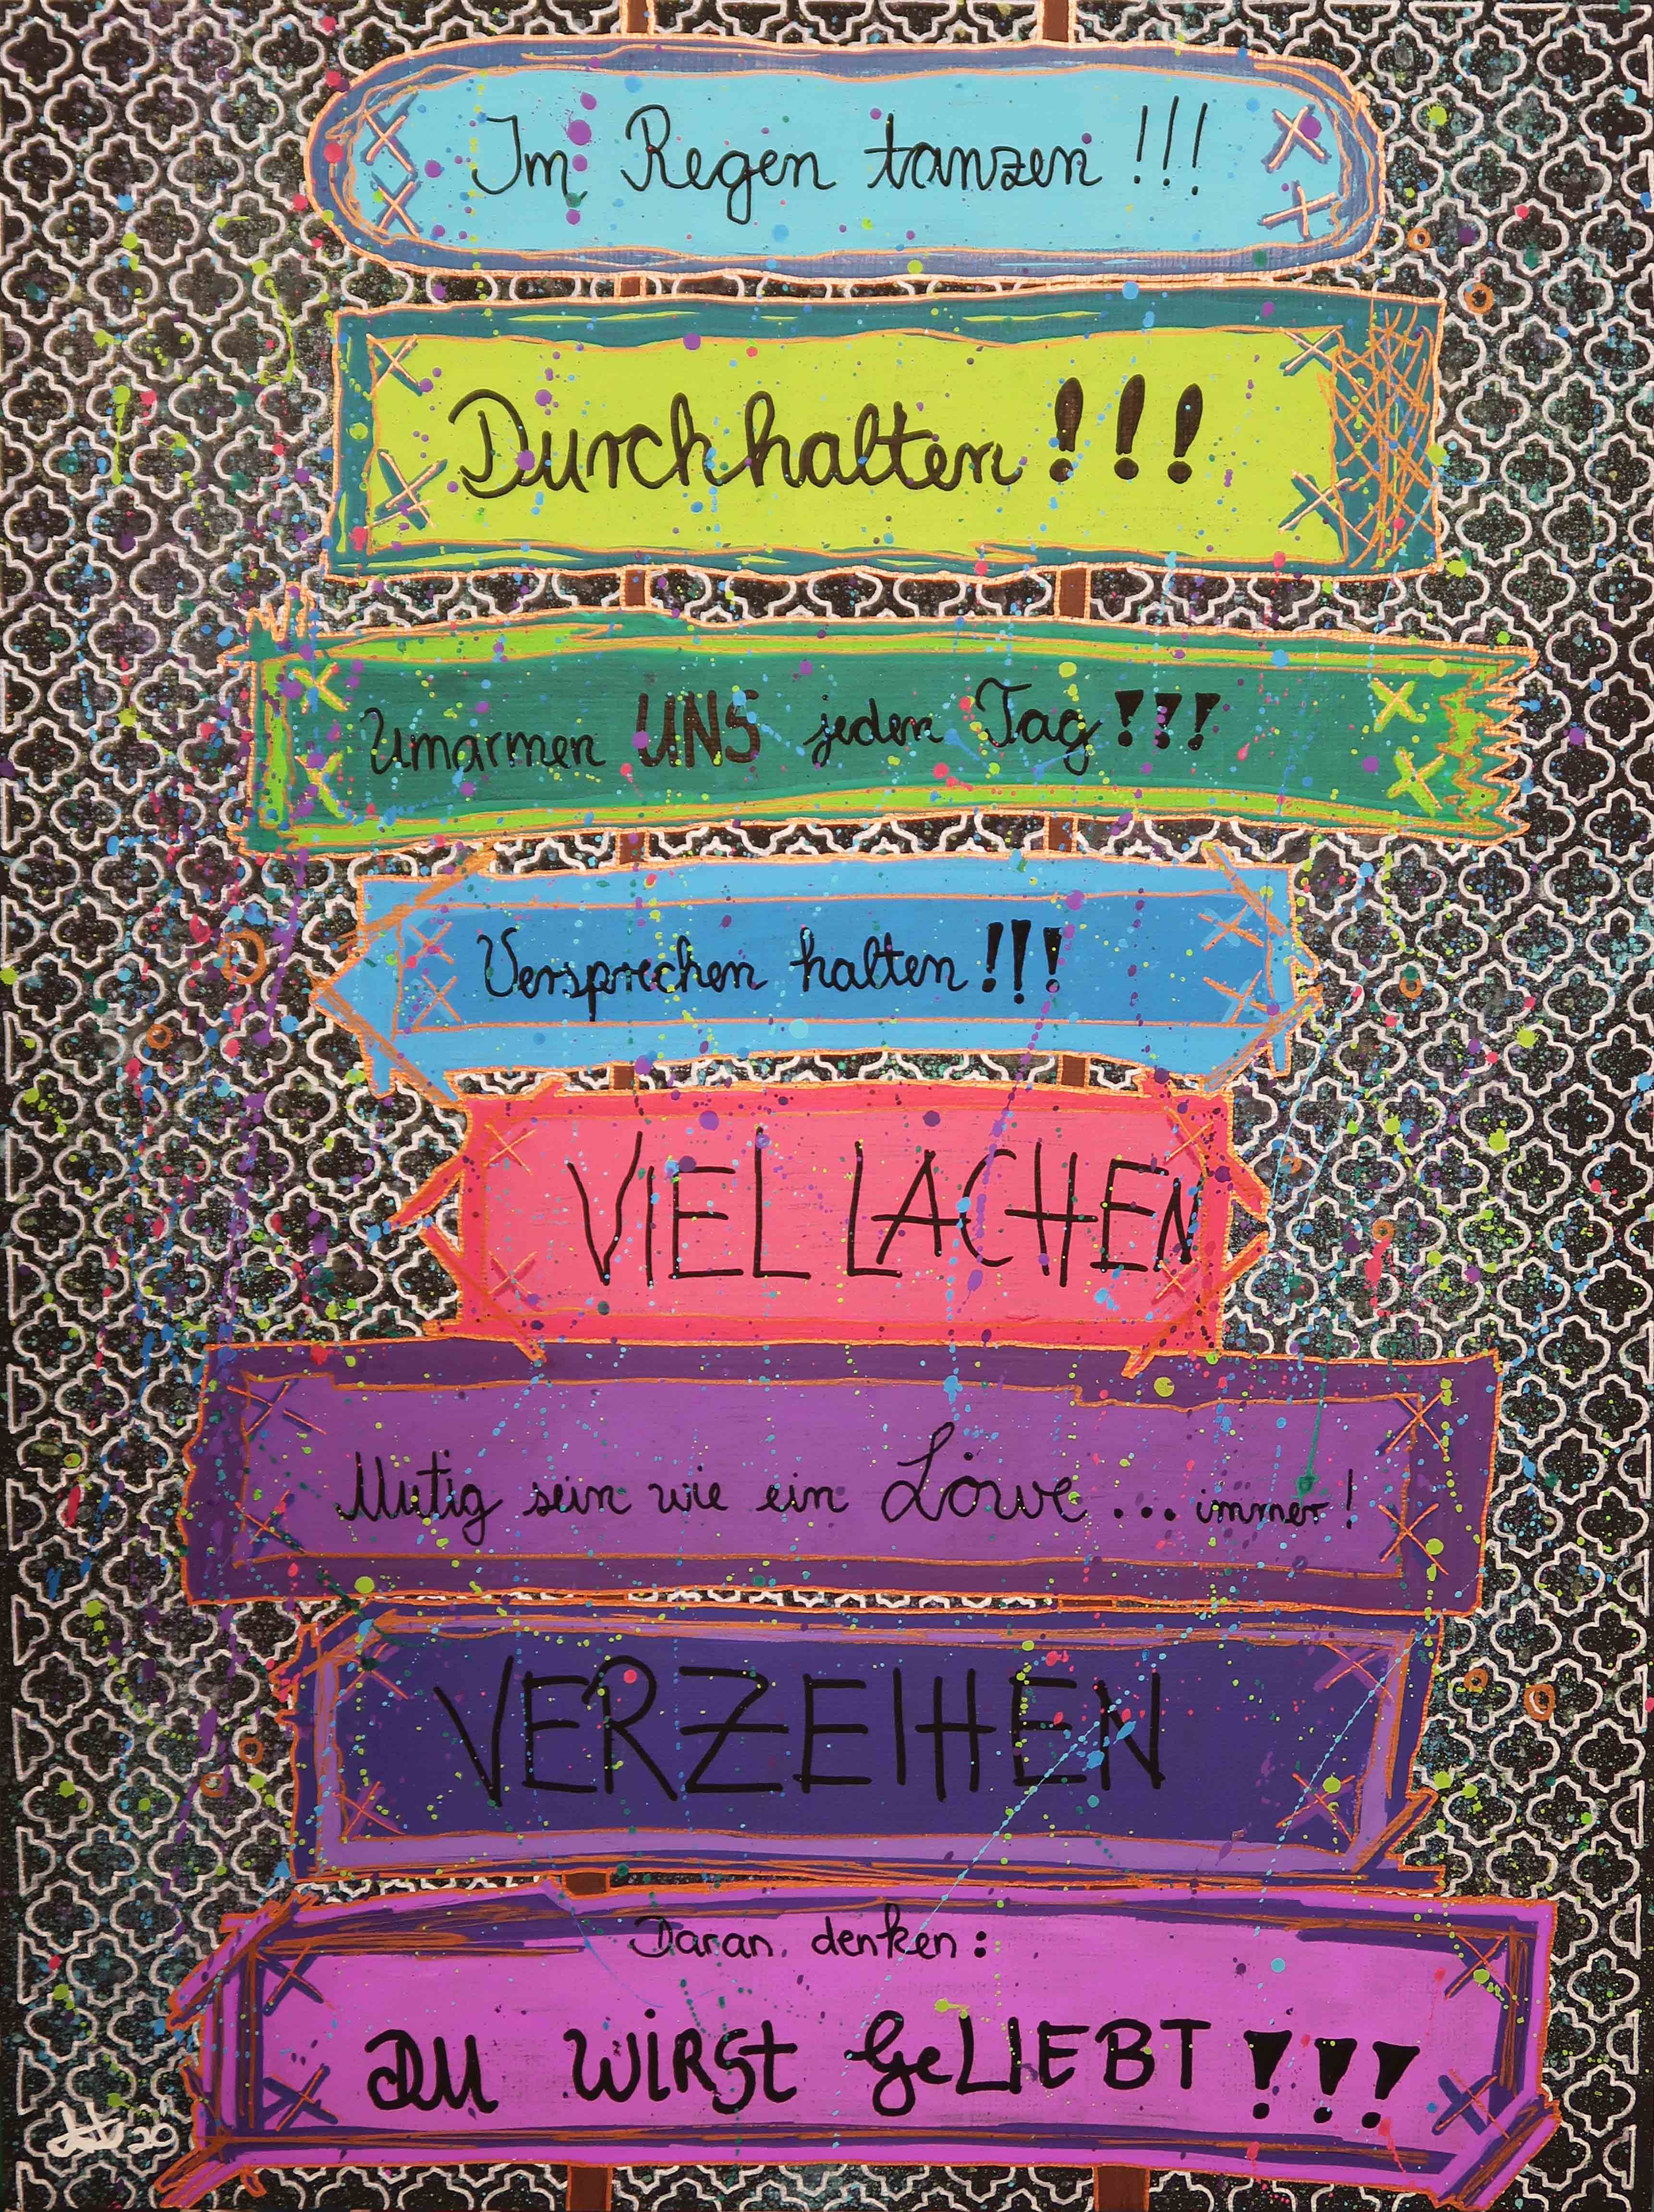 Im Regen tanzen!!!
Durchhalten!!!
Umarmen UNS jeden Tag!!!
Versprechen halten!!!
VIEL LACHEN
Mutig sein wie ein Löwe... immer!
VERZEIHEN
Daran denken:
DU WIRSt GeLIEBT!!!
20